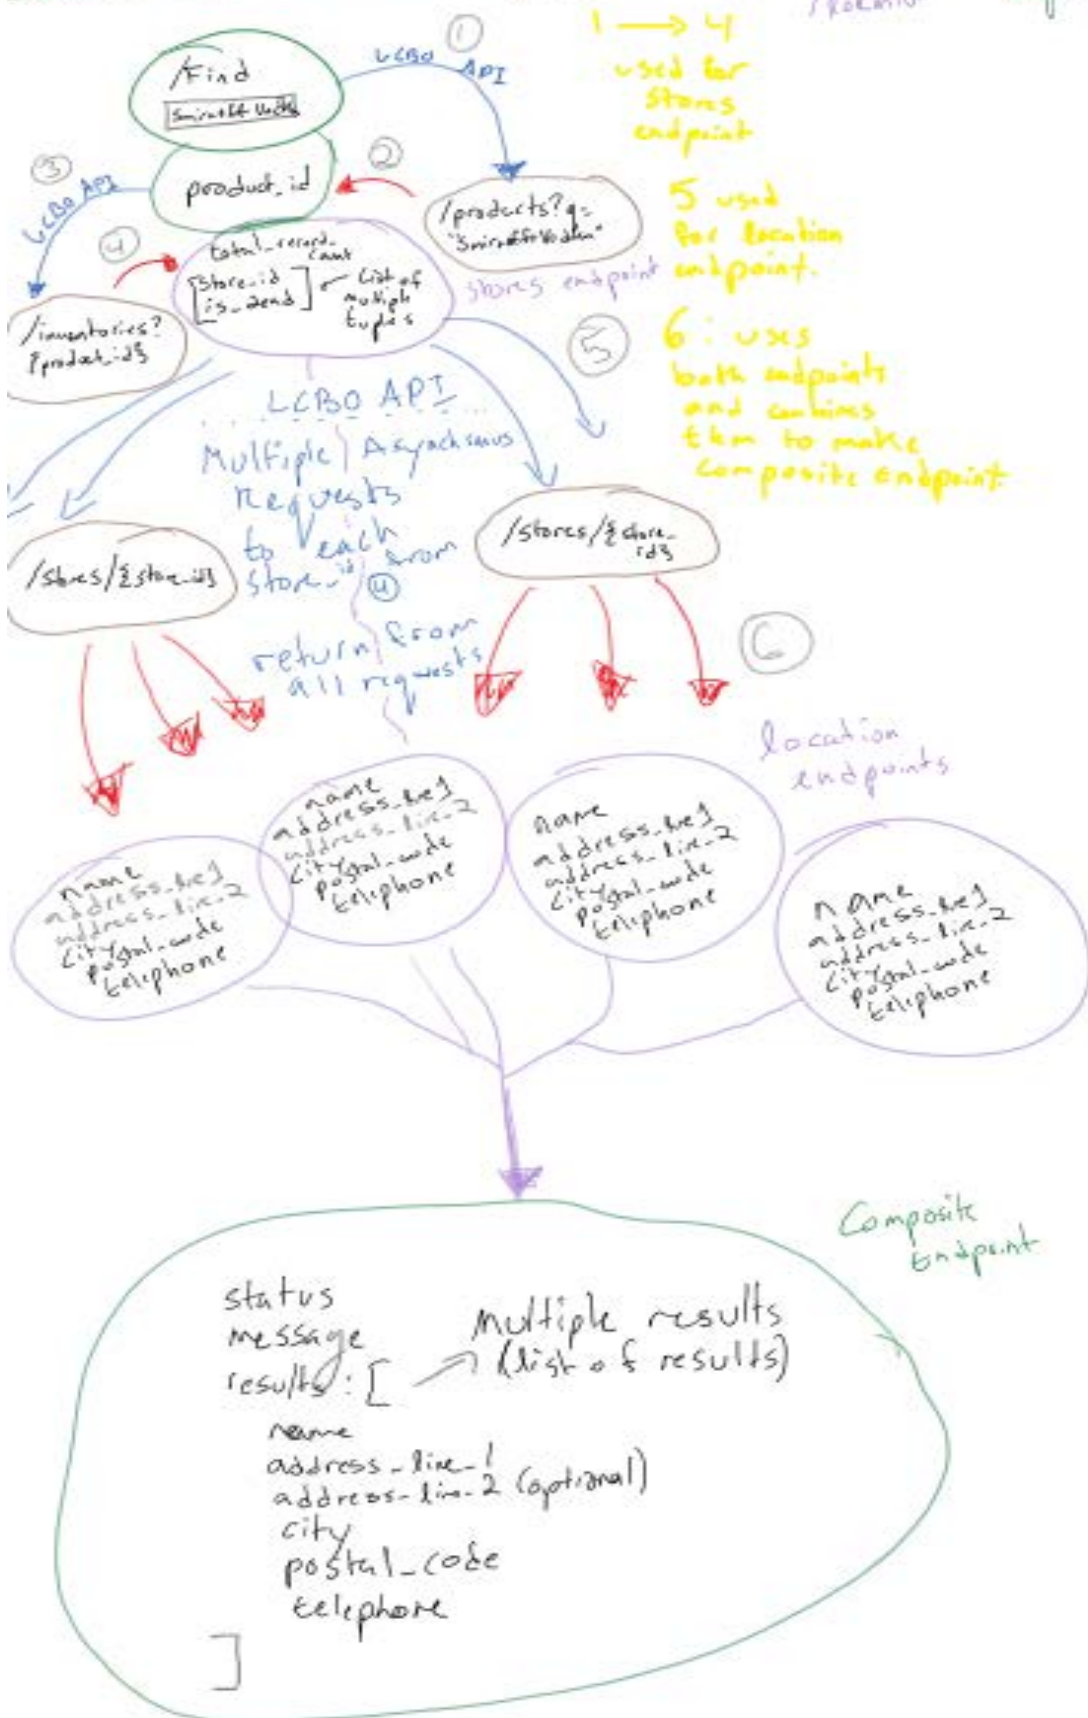 1 → 4
used for
stores
endpoint
①
LCBO API
/Find
②
product_id
/products?q=
③
LCBO API
④
[store_id
is_dead]
List of
multiple
tuples
stores endpoint
5 used
for location
endpoint.
/inventories?
{product_id}
⑤
6: uses
both endpoints
and combines
them to make
composite endpoint.
LCBO API
Multiple Asynchronus
Requests
to each
store_id from
④
/stores/{store_id}
/stores/{store_
id}
return from
all requests
⑥
location
endpoints
name
address_line1
address_line_2
city
postal_code
telephone
name
address_line1
address_line_2
city
postal_code
telephone
name
address_line1
address_line_2
city
postal_code
telephone
name
address_line1
address_line_2
city
postal_code
telephone
Composite
Endpoint
status
message
results: [
multiple results
(list of results)
name
address_line_1
address_line_2 (optional)
city
postal_code
telephone
]